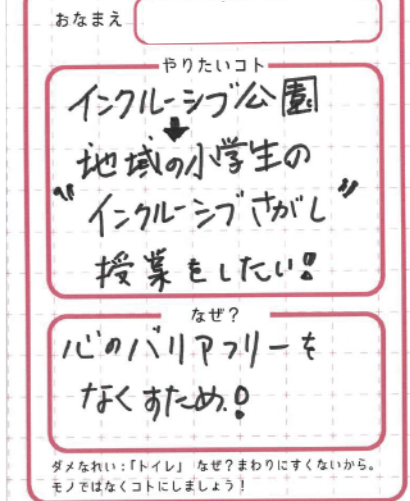 おなまえ
やりたいコト
インクルーシブ公園
↓
地域の小学生の
"インクルーシブさがし"
授業をしたい!
なぜ?
心のバリアフリーを
なくすため!
ダメなれい:「トイレ」 なぜ?まわりにすくないから。
モノではなくコトにしましょう!